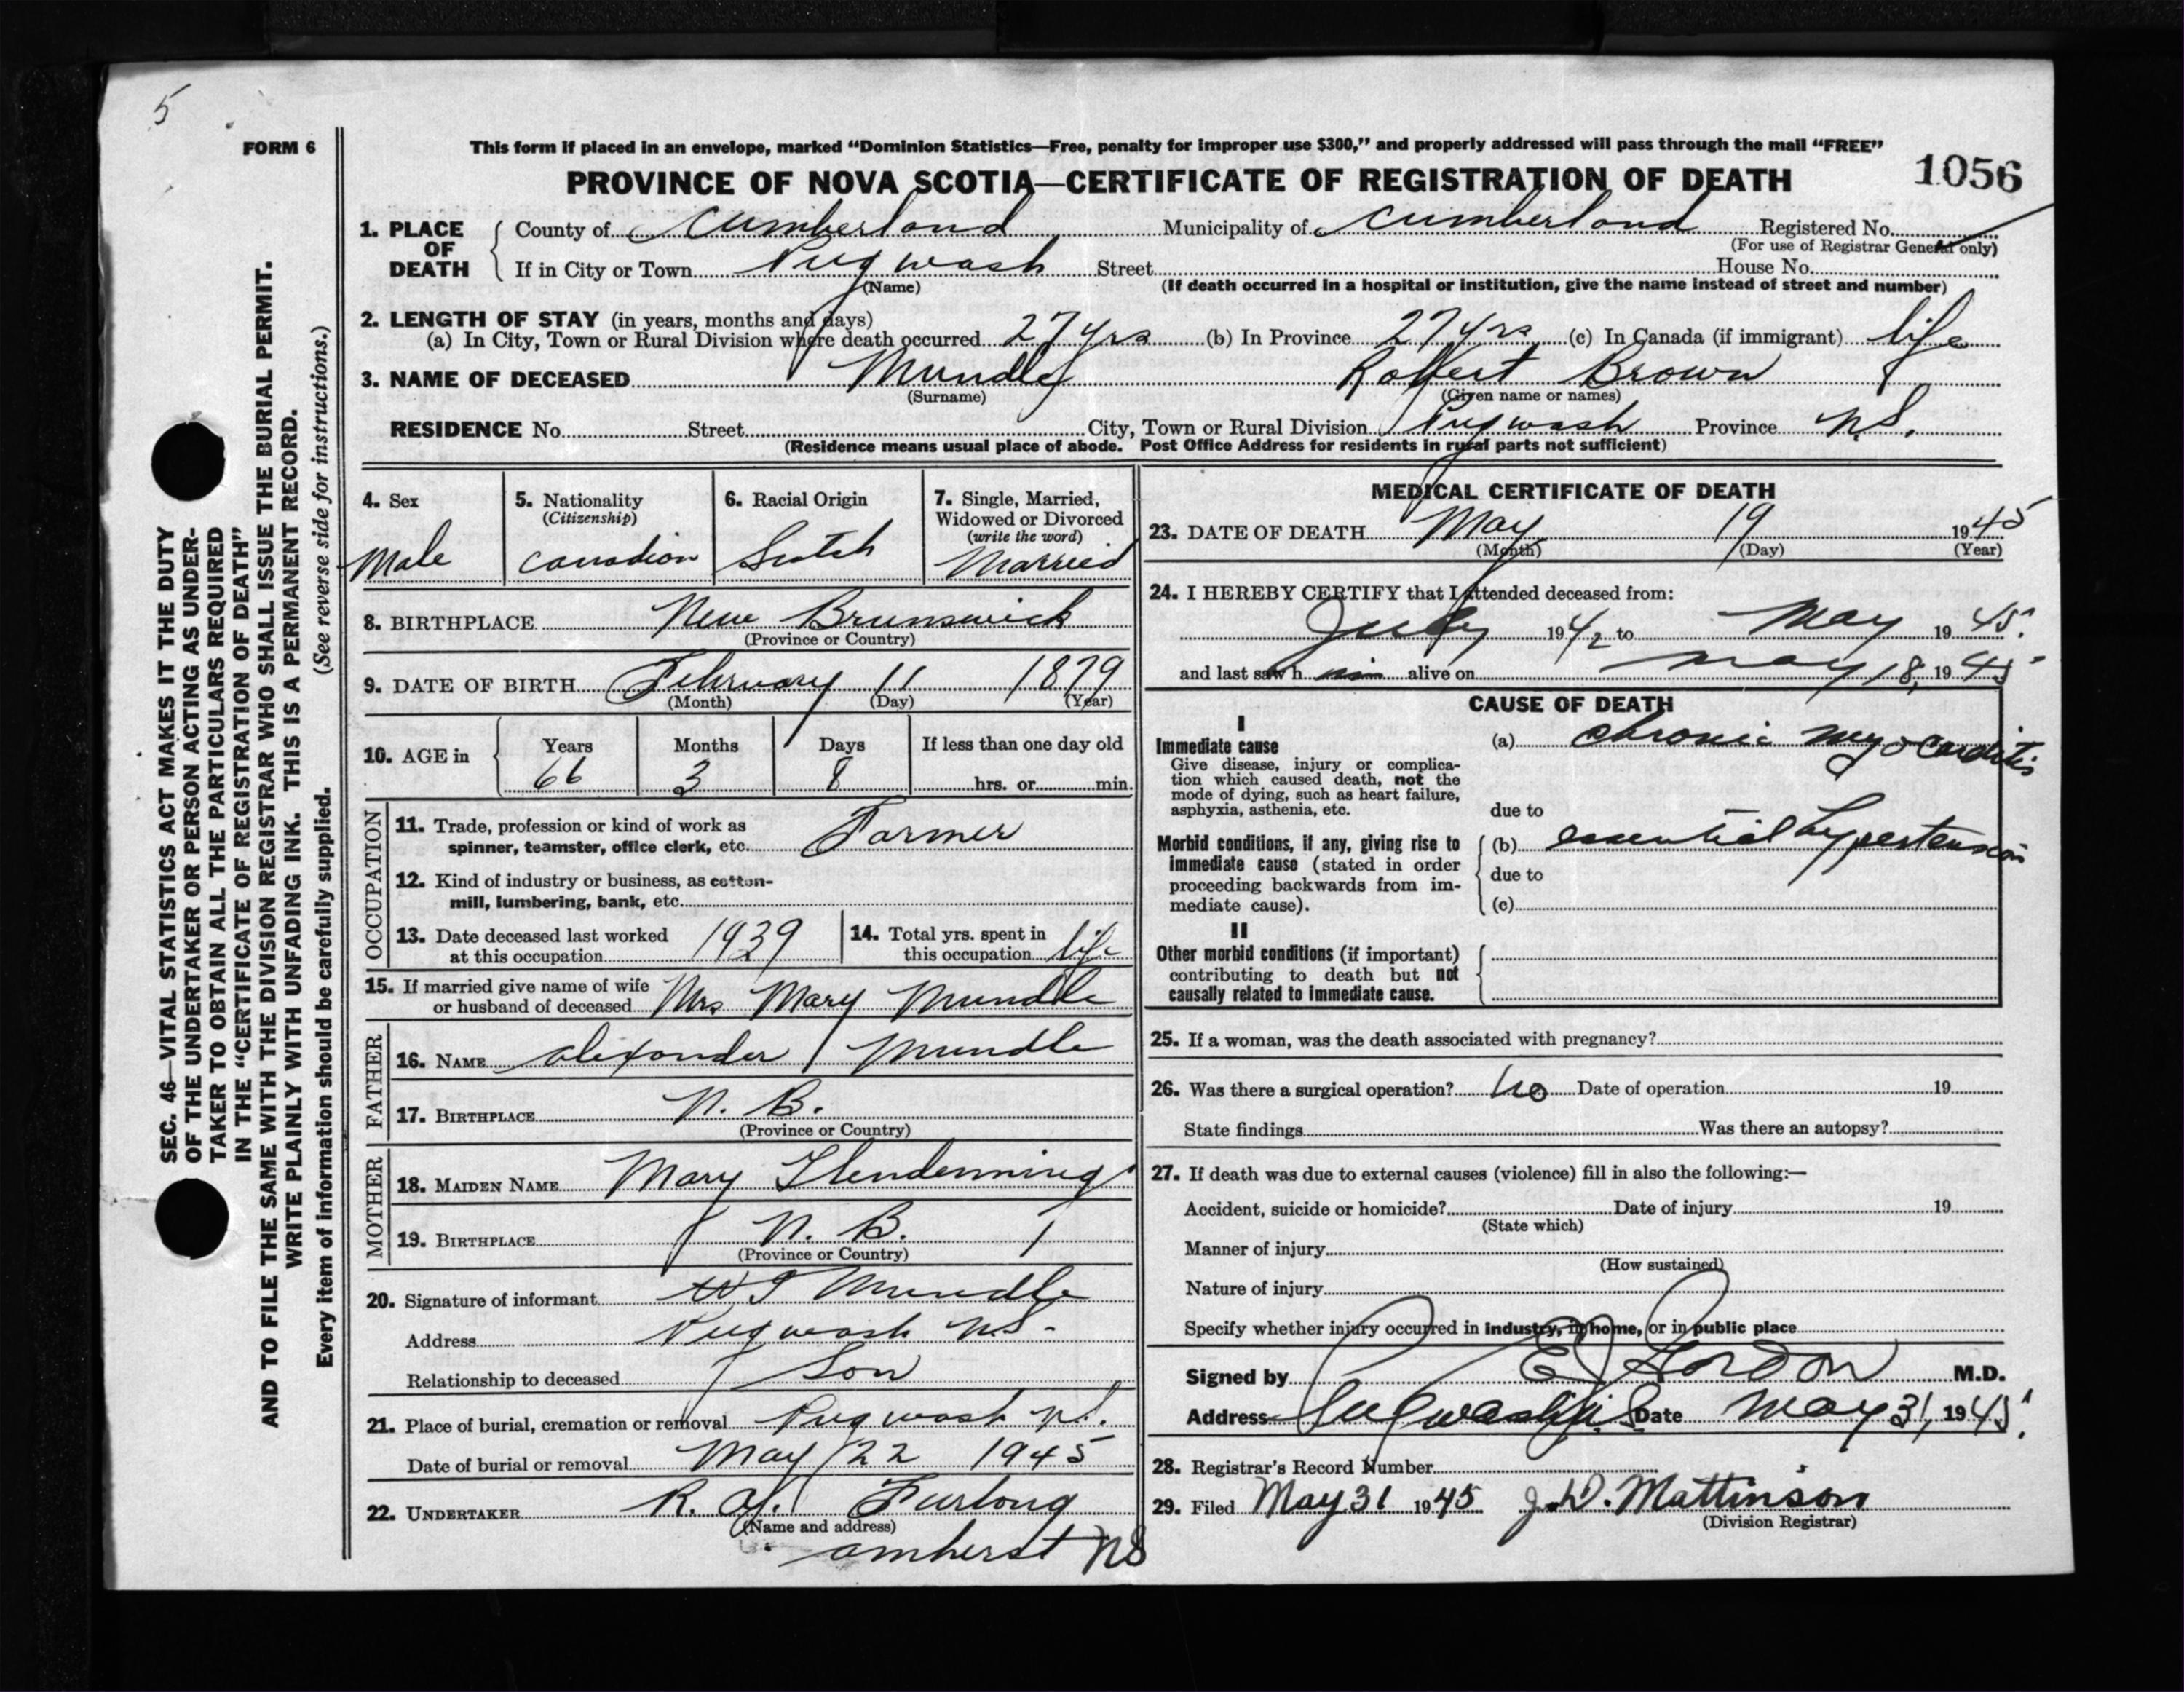 5
FORM 6
This form if placed in an envelope, marked "Dominion Statistics—Free, penalty for improper use $300," and properly addressed will pass through the mail "FREE"
PROVINCE OF NOVA SCOTIA—CERTIFICATE OF REGISTRATION OF DEATH
1056
1. PLACE OF DEATH
County of Cumberland Municipality of Cumberland Registered No.
(For use of Registrar General only)
If in City or Town Pugwash Street House No.
(Name) (If death occurred in a hospital or institution, give the name instead of street and number)
2. LENGTH OF STAY (in years, months and days)
(a) In City, Town or Rural Division where death occurred 27 yrs (b) In Province 27 yrs (c) In Canada (if immigrant) life
3. NAME OF DECEASED Mundle Robert Brown
(Surname) (Given name or names)
RESIDENCE No. Street City, Town or Rural Division Pugwash Province N.S.
(Residence means usual place of abode. Post Office Address for residents in rural parts not sufficient)
4. Sex
Male
5. Nationality
(Citizenship)
Canadian
6. Racial Origin
Scotch
7. Single, Married,
Widowed or Divorced
(write the word)
Married
8. BIRTHPLACE New Brunswick
(Province or Country)
9. DATE OF BIRTH February 11 1879
(Month) (Day) (Year)
10. AGE in
Years Months Days If less than one day old
66 3 8 hrs. or min.
OCCUPATION
11. Trade, profession or kind of work as
spinner, teamster, office clerk, etc. Farmer
12. Kind of industry or business, as cotton-
mill, lumbering, bank, etc.
13. Date deceased last worked
at this occupation 1939
14. Total yrs. spent in
this occupation life
15. If married give name of wife
or husband of deceased Mrs Mary Mundle
FATHER
16. NAME Alexander Mundle
17. BIRTHPLACE N. B.
(Province or Country)
MOTHER
18. MAIDEN NAME Mary Glendenning
19. BIRTHPLACE N. B.
(Province or Country)
20. Signature of informant Mundle
Address Pugwash N.S.
Relationship to deceased Son
21. Place of burial, cremation or removal Pugwash N.S.
Date of burial or removal May 22 1945
22. UNDERTAKER R. Furlong
(Name and address)
Amherst NS
MEDICAL CERTIFICATE OF DEATH
23. DATE OF DEATH May 19 1945
(Month) (Day) (Year)
24. I HEREBY CERTIFY that I attended deceased from:
July 1942 to May 1945.
and last saw h im alive on May 18, 1945
CAUSE OF DEATH
I
Immediate cause
Give disease, injury or complica-
tion which caused death, not the
mode of dying, such as heart failure,
asphyxia, asthenia, etc.
(a) chronic myocarditis
due to
Morbid conditions, if any, giving rise to
immediate cause (stated in order
proceeding backwards from im-
mediate cause).
(b) essential hypertension
due to
(c)
II
Other morbid conditions (if important)
contributing to death but not
causally related to immediate cause.
25. If a woman, was the death associated with pregnancy?
26. Was there a surgical operation? no Date of operation 19
State findings Was there an autopsy?
27. If death was due to external causes (violence) fill in also the following:—
Accident, suicide or homicide? Date of injury 19
(State which)
Manner of injury
(How sustained)
Nature of injury
Specify whether injury occurred in industry, in home, or in public place
Signed by Gordon M.D.
Address Pugwash N.S. Date May 31, 1945.
28. Registrar's Record Number
29. Filed May 31 1945 J.D. Mattinson
(Division Registrar)
SEC. 46—VITAL STATISTICS ACT MAKES IT THE DUTY
OF THE UNDERTAKER OR PERSON ACTING AS UNDER-
TAKER TO OBTAIN ALL THE PARTICULARS REQUIRED
IN THE "CERTIFICATE OF REGISTRATION OF DEATH"
AND TO FILE THE SAME WITH THE DIVISION REGISTRAR WHO SHALL ISSUE THE BURIAL PERMIT.
WRITE PLAINLY WITH UNFADING INK. THIS IS A PERMANENT RECORD.
Every item of information should be carefully supplied. (See reverse side for instructions.)